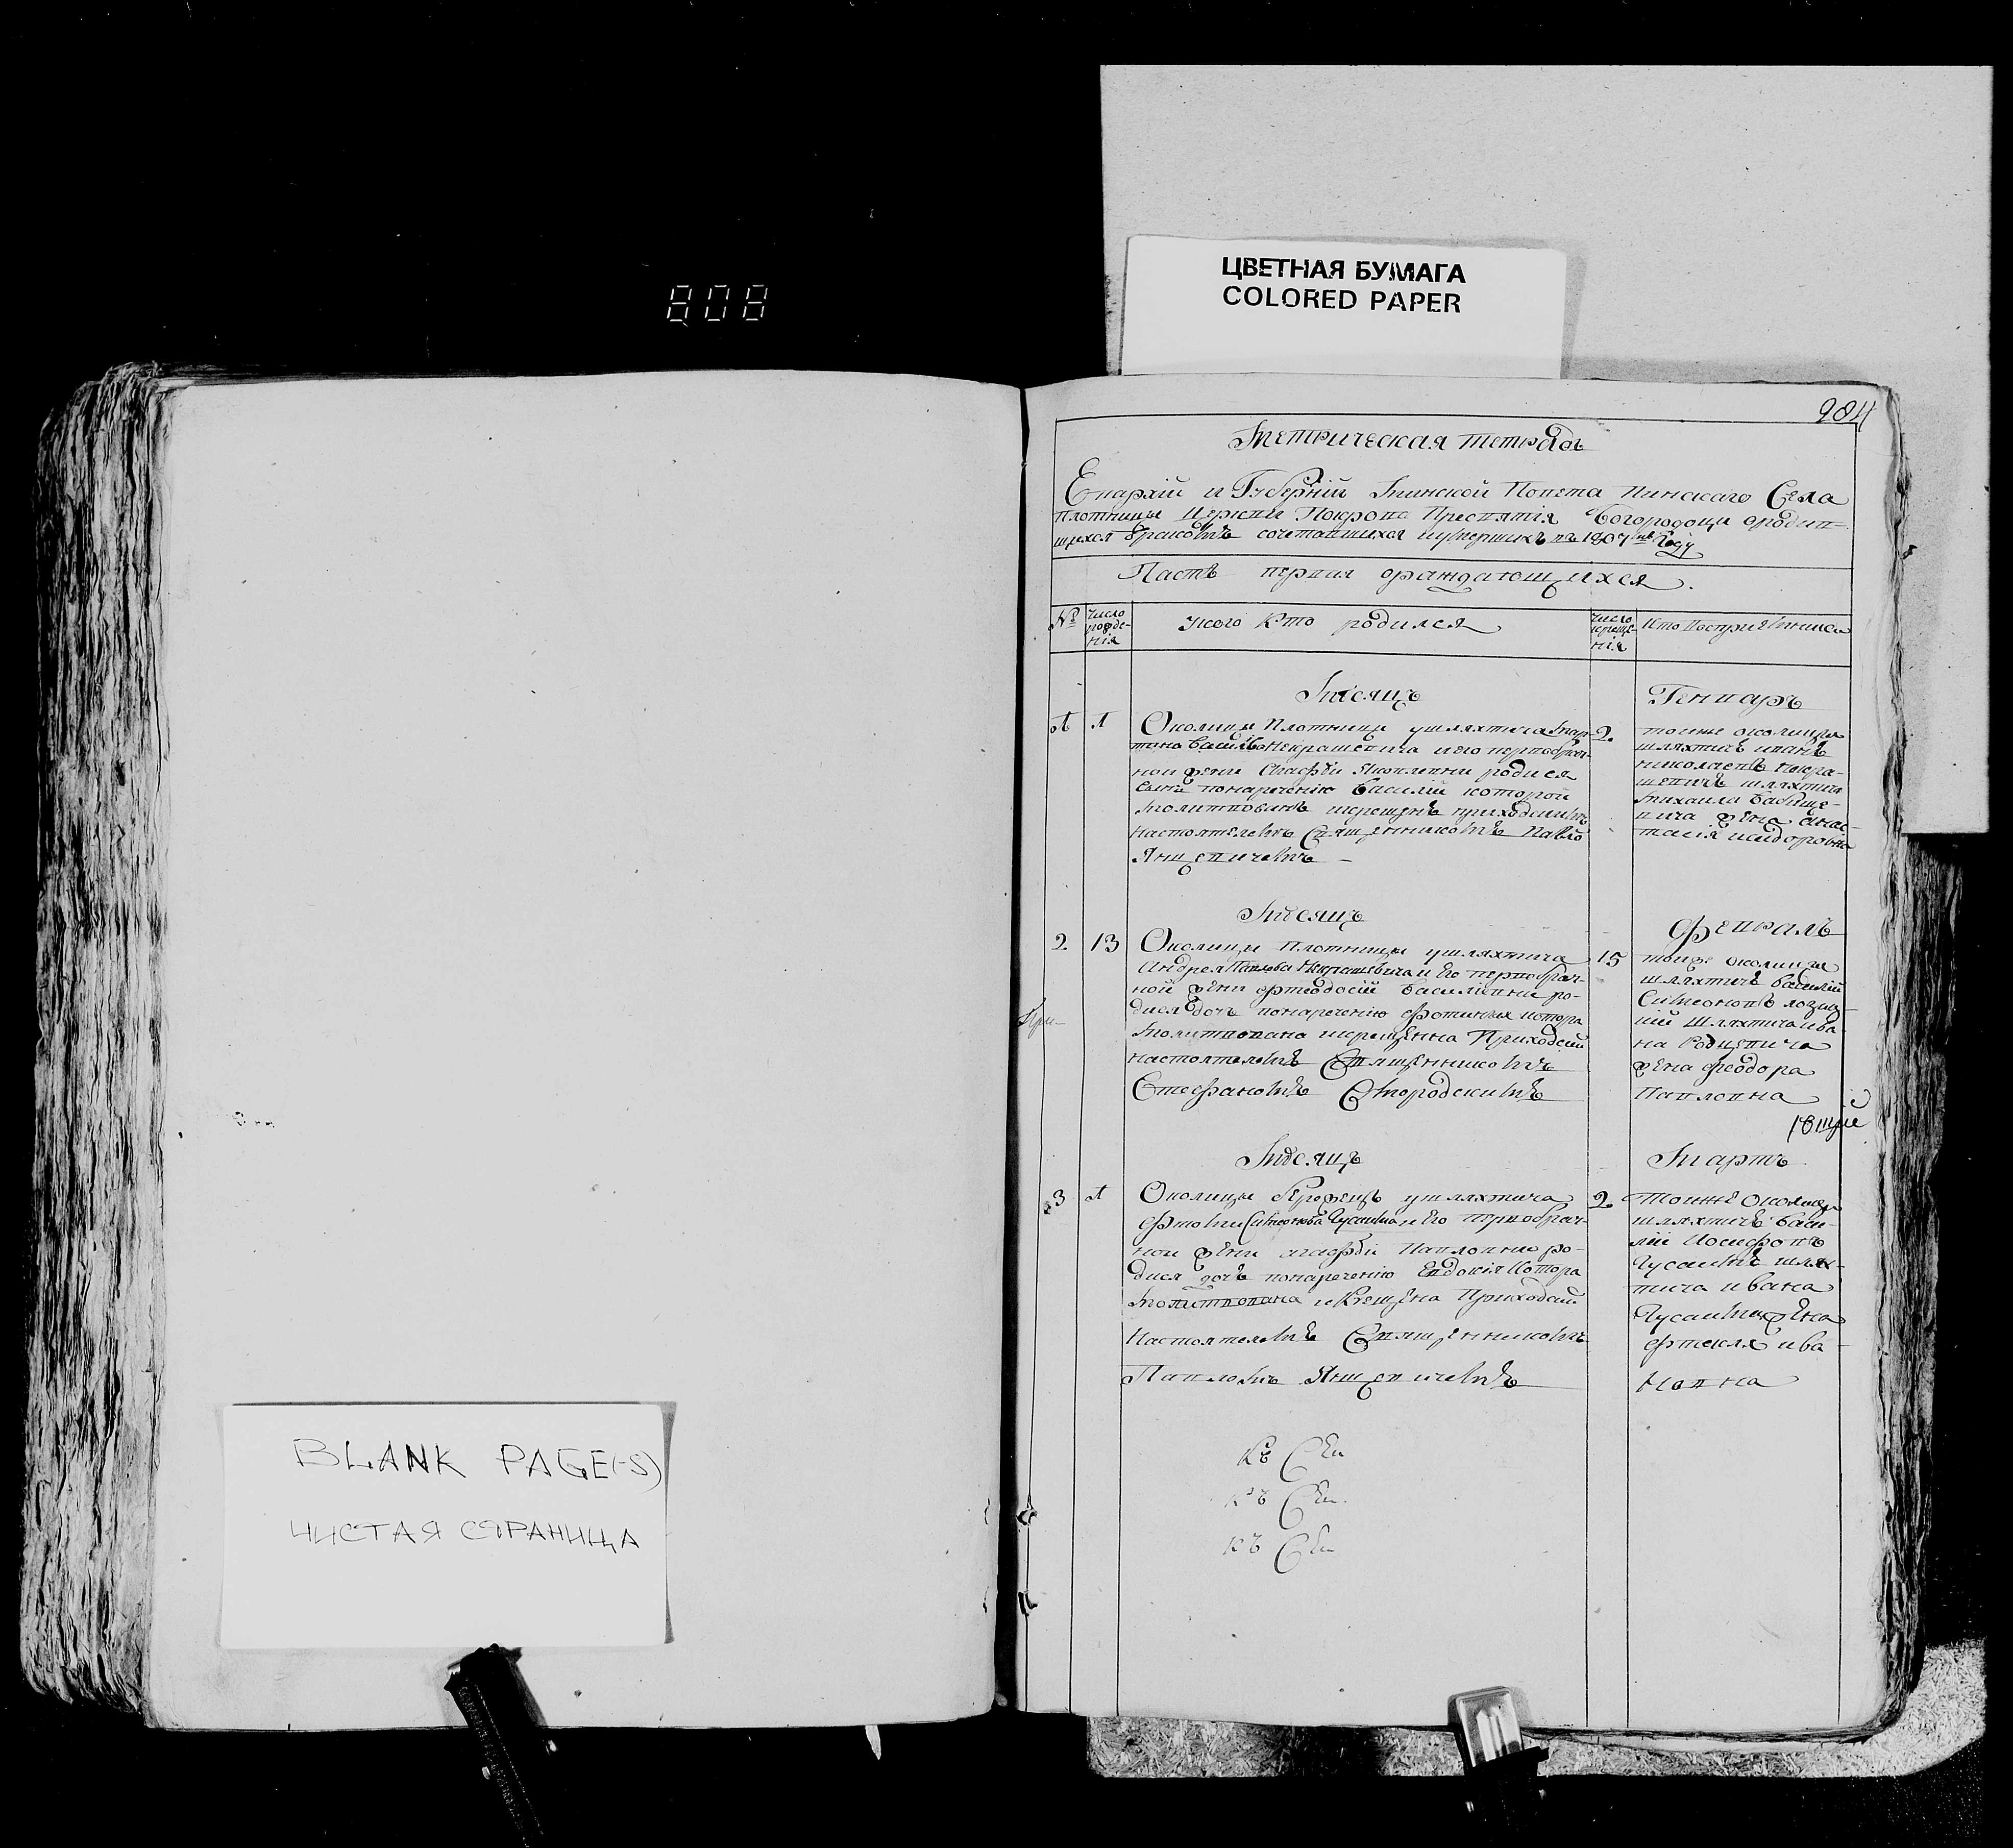 ЦВЕТНАЯ БУМАГА
COLORED PAPER
808
284
Метрическая тетрадь
Епархіи и Губерніи Минской Повета Пинскаго Села
Плотницы Церкви Покрова Пресвятія Богородоци о родив-
шихся бракомъ сочетавшихся и умершихъ въ 1807мъ Году
Часть первая о раждающихся.
№ Число рожде- нія
у кого кто родился
число креще- нія
Кто Восприемники
Месяцъ Генваръ
1 1 Околицы Плотницы у шляхтича Мар-
тина Василева Некрашевича и его первобрач-
ной жены Агафіи Яковлевны родися
сынъ понаречению Василій которой
молитвованъ и крещенъ приходскимъ
настоятелемъ Священникомъ Павло
Янцевичемъ
2 тоеже околицы
шляхтичъ иванъ
николаевъ некра-
шевичъ шляхтича
михаила
жена анас-
тасія исидоровна
Месяцъ Февраль
2 13 Околицы Плотницы у шляхтича
Андрея Павлова Некрашевича и Его первобрач-
ной жены Феодосіи Василіевны ро-
дися дочь понаречению Фотинія котора
молитвована и крещенна Приходски
настоятелемъ Священникомъ
Стефаномъ Смородскимъ
15 тоиже околицы
шляхтичъ Василій
Симеоновъ
шляхтича ива-
на Родцевича
жена феодора
Павловна
Месяцъ Мартъ
3 1 Околицы у шляхтича
Фомы Симеонова Гусаима и Его первобрач-
ной жены агафіи Павловны ро-
дися дочь понаречению Евдокія Котора
молитвована и Крещена Приходски
Настоятелемъ Священникомъ
Павломъ Янцевичемъ
2 Тоижъ Околицы
шляхтичъ Васи-
лій Иосифовъ
шлях-
тича ивана
жена
фтекля ива-
новна
Къ
Къ
Къ
BLANK PAGE(-S)
ЧИСТАЯ СТРАНИЦА